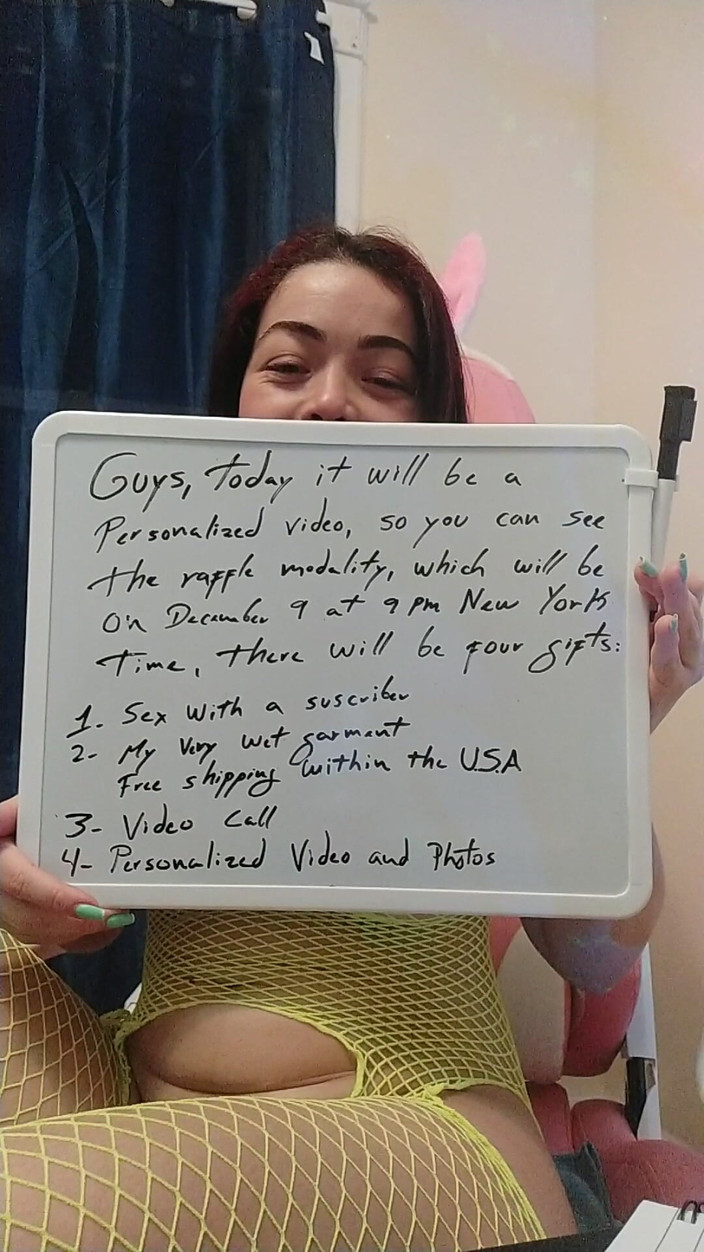 Guys, today it will be a
Personalized video, so you can see
the raffle modality, which will be
on December 9 at 9 pm New York
time, there will be four gifts:
1. Sex with a suscriber
2- My very wet garment
Free shipping within the U.S.A
3- Video Call
4- Personalized Video and Photos